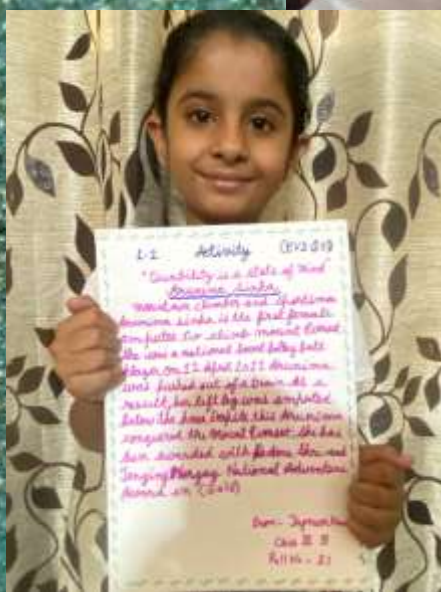 L-1 Activity (EVS)
"Durability is a state of Mind"
Arunima Sinha
Mountain climber and Sportsman
Arunima Sinha is the first female
amputee to climb mount Everest
She was a national level volley ball
player on 12 April 2011 Arunima
was pushed out of a train. As a
result, her left leg was amputated
below the knee Despite this Arunima
conquered the Mount Everest. She has
been awarded with Padma Shri and
Tenzing Norgay National Adventure
Award in (2015)
From -
Class III B
Roll No - 21